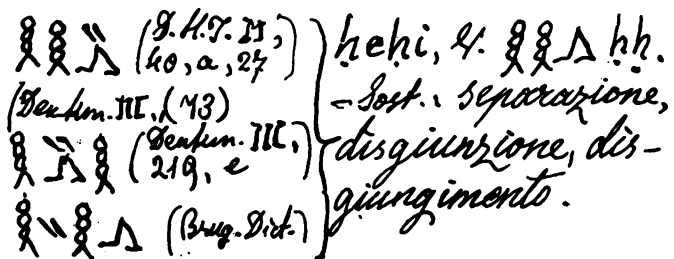 𓎛𓎛𓏭𓂻 (D.H.I. II,
40, a, 27)
(Denkm. III, 73)
𓎛𓏭𓂻𓎛 (Denkm. III,
219, e
𓎛𓏭𓎛𓂻 (Brug. Dict.)
ḥeḥi, V. 𓎛𓎛𓂻 ḥḥ.
- Sost.: separazione,
disgiunzione, dis-
giungimento.